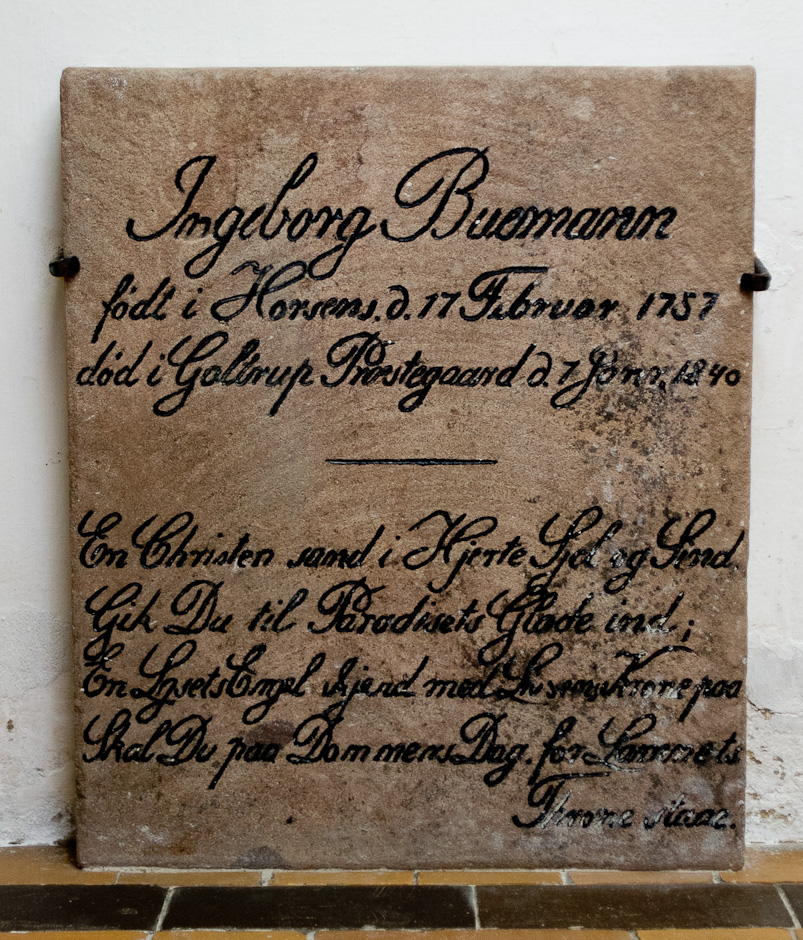 Ingeborg Buemann
født i Horsens. d. 17 Februar 1757
død i Galtrup Præstegaard d. 7 Janr. 1840
En Christen sand i Hjerte Sjel og Sind.
Gik Du til Paradisets Glæde ind;
En Lysets Engel skjend med Livsens Krone paa
Skal Du paa Dommens Dag. for Lammets
Throne staae.